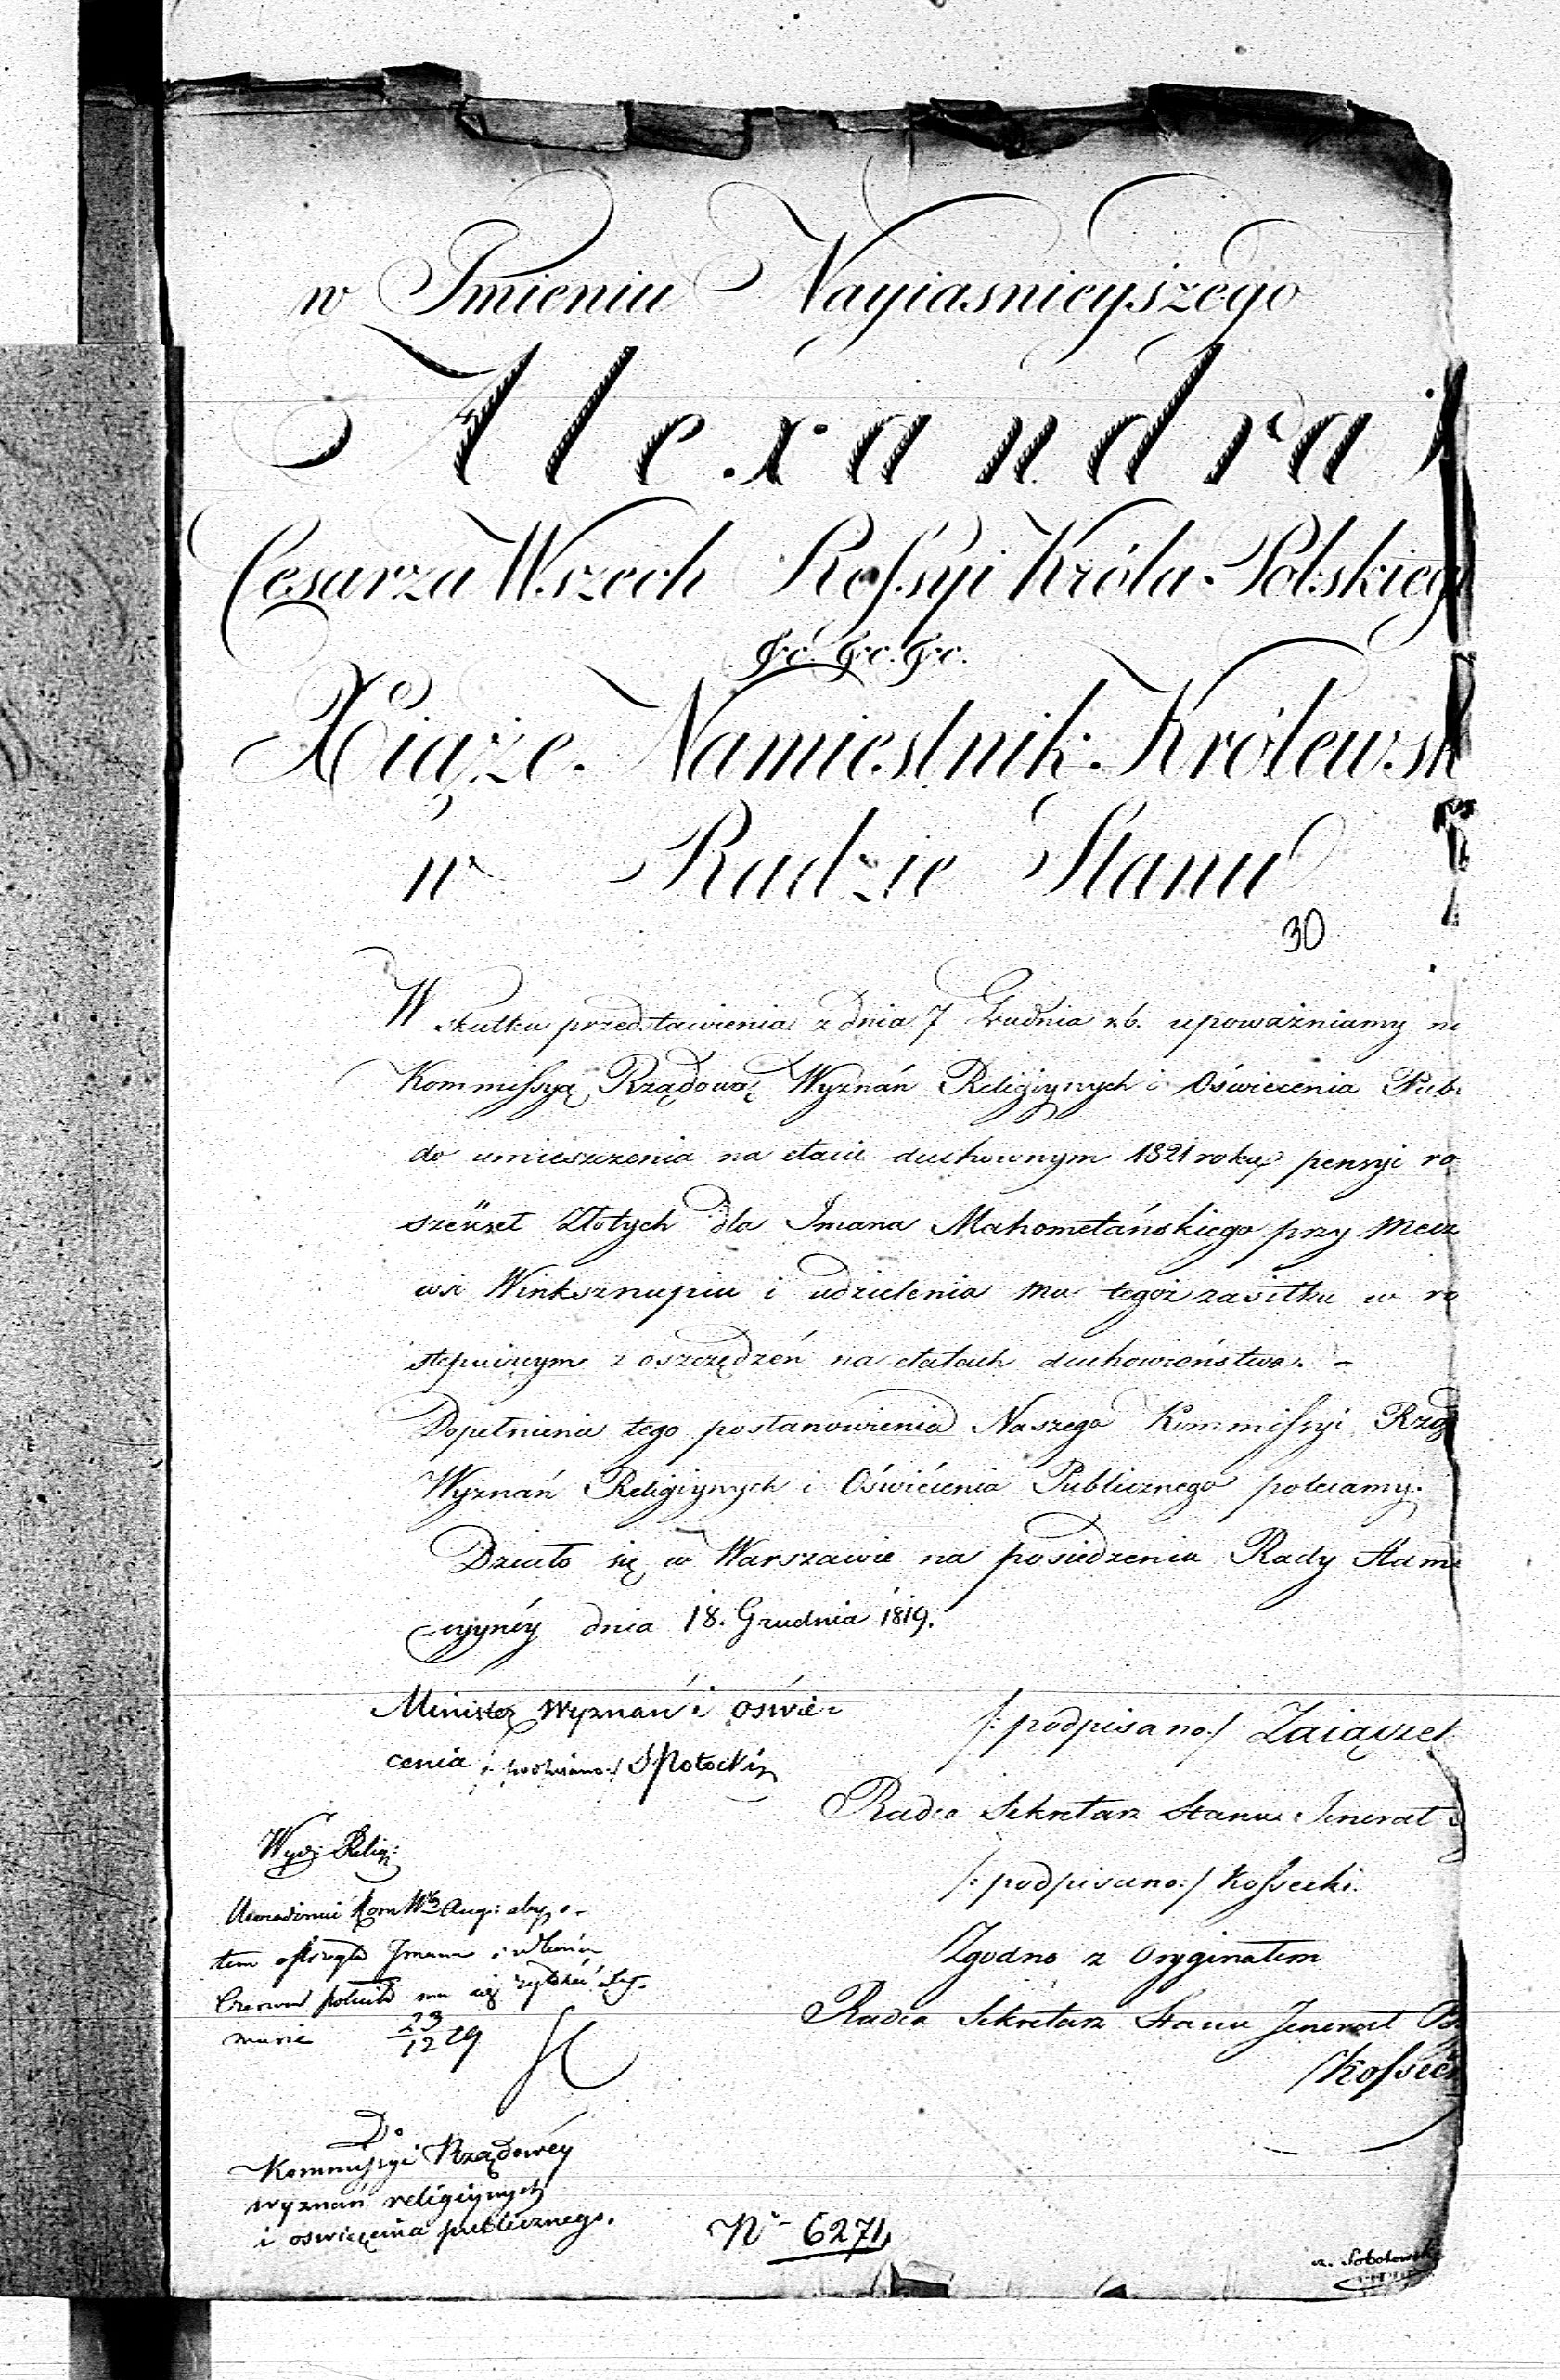 w Imieniu Nayiasnieyszego
Alexandra I
Cesarza Wszech Rossyi Króla Polskieg
&c. &c. &c.
Xiąże Namiestnik Królewsk
w Radzie Stanu
30
W skutku przedstawienia z dnia 7 Grudnia r.b. upoważniamy
Kommissyą Rządową Wyznań Religiynych i Oświecenia Pub
do umieszczenia na etacie duchownym 1821 roku pensyi ro
szeuset Złotych dla Imana Mahometańskiego przy Mecz
wsi Winksznupiu i udzielenia mu tegoż zasiłku w ro
stępuiącym z oszczędzeń na etatach duchowieństwa. -
Dopełnienie tego postanowienia Naszego Kommissyi Rzą
Wyznań Religiynych i Oświecenia Publicznego polecamy.
Działo się w Warszawie na posiedzeniu Rady
cyyney dnia 18. Grudnia 1819.
Minister Wyznań i oświe-
cenia /: podpisano :/ S Potocki
/: podpisano :/ Zaiączek
Radca Sekretarz Stanu Jenerał
/: podpisano :/ Kossecki.
Zgodno z Oryginałem
Radca Sekretarz Stanu Jenerał
Kossec
Wydz: Relig:
Kom Augi: aby o
tem Imana i
mu się
23/12 19
Do
Kommissyi Rządowéy
wyznań religiynych
i oswiecenia publicznego.
No 6271,
Sobolewski